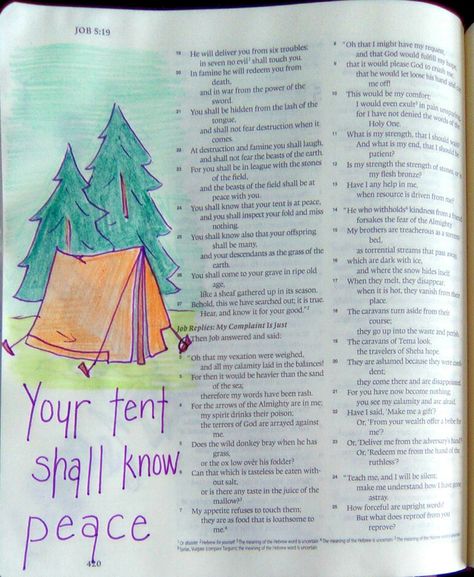 JOB 5:19
19 He will deliver you from six troubles;
in seven no evil¹ shall touch you.
20 In famine he will redeem you from
death,
and in war from the power of the
sword.
21 You shall be hidden from the lash of the
tongue,
and shall not fear destruction when it
comes.
22 At destruction and famine you shall laugh,
and shall not fear the beasts of the earth.
23 For you shall be in league with the stones
of the field,
and the beasts of the field shall be at
peace with you.
24 You shall know that your tent is at peace,
and you shall inspect your fold and miss
nothing.
25 You shall know also that your offspring
shall be many,
and your descendants as the grass of the
earth.
26 You shall come to your grave in ripe old
age,
like a sheaf gathered up in its season.
27 Behold, this we have searched out; it is true.
Hear, and know it for your good."²
Job Replies: My Complaint Is Just
Then Job answered and said:
2 "Oh that my vexation were weighed,
and all my calamity laid in the balances!
3 For then it would be heavier than the sand
of the sea;
therefore my words have been rash.
4 For the arrows of the Almighty are in me;
my spirit drinks their poison;
the terrors of God are arrayed against
me.
5 Does the wild donkey bray when he has
grass,
or the ox low over his fodder?
6 Can that which is tasteless be eaten with-
out salt,
or is there any taste in the juice of the
mallow?³
7 My appetite refuses to touch them;
they are as food that is loathsome to
me.⁴
8 "Oh that I might have my request,
and that God would fulfill my hope,
9 that it would please God to crush me,
that he would let loose his hand and cut
me off!
10 This would be my comfort;
I would even exult⁵ in pain unsparing,
for I have not denied the words of the
Holy One.
11 What is my strength, that I should wait?
And what is my end, that I should be
patient?
12 Is my strength the strength of stones, or is
my flesh bronze?
13 Have I any help in me,
when resource is driven from me?
14 "He who withholds⁶ kindness from a friend
forsakes the fear of the Almighty.
15 My brothers are treacherous as a torrent-
bed,
as torrential streams that pass away,
16 which are dark with ice,
and where the snow hides itself.
17 When they melt, they disappear;
when it is hot, they vanish from their
place.
18 The caravans turn aside from their
course;
they go up into the waste and perish.
19 The caravans of Tema look,
the travelers of Sheba hope.
20 They are ashamed because they were confi-
dent;
they come there and are disappointed.
21 For you have now become nothing;
you see my calamity and are afraid.
22 Have I said, 'Make me a gift'?
Or, 'From your wealth offer a bribe for
me'?
23 Or, 'Deliver me from the adversary's hand'?
Or, 'Redeem me from the hand of the
ruthless'?
24 "Teach me, and I will be silent;
make me understand how I have gone
astray.
25 How forceful are upright words!
But what does reproof from you
reprove?
Your tent
shall know
peace
420